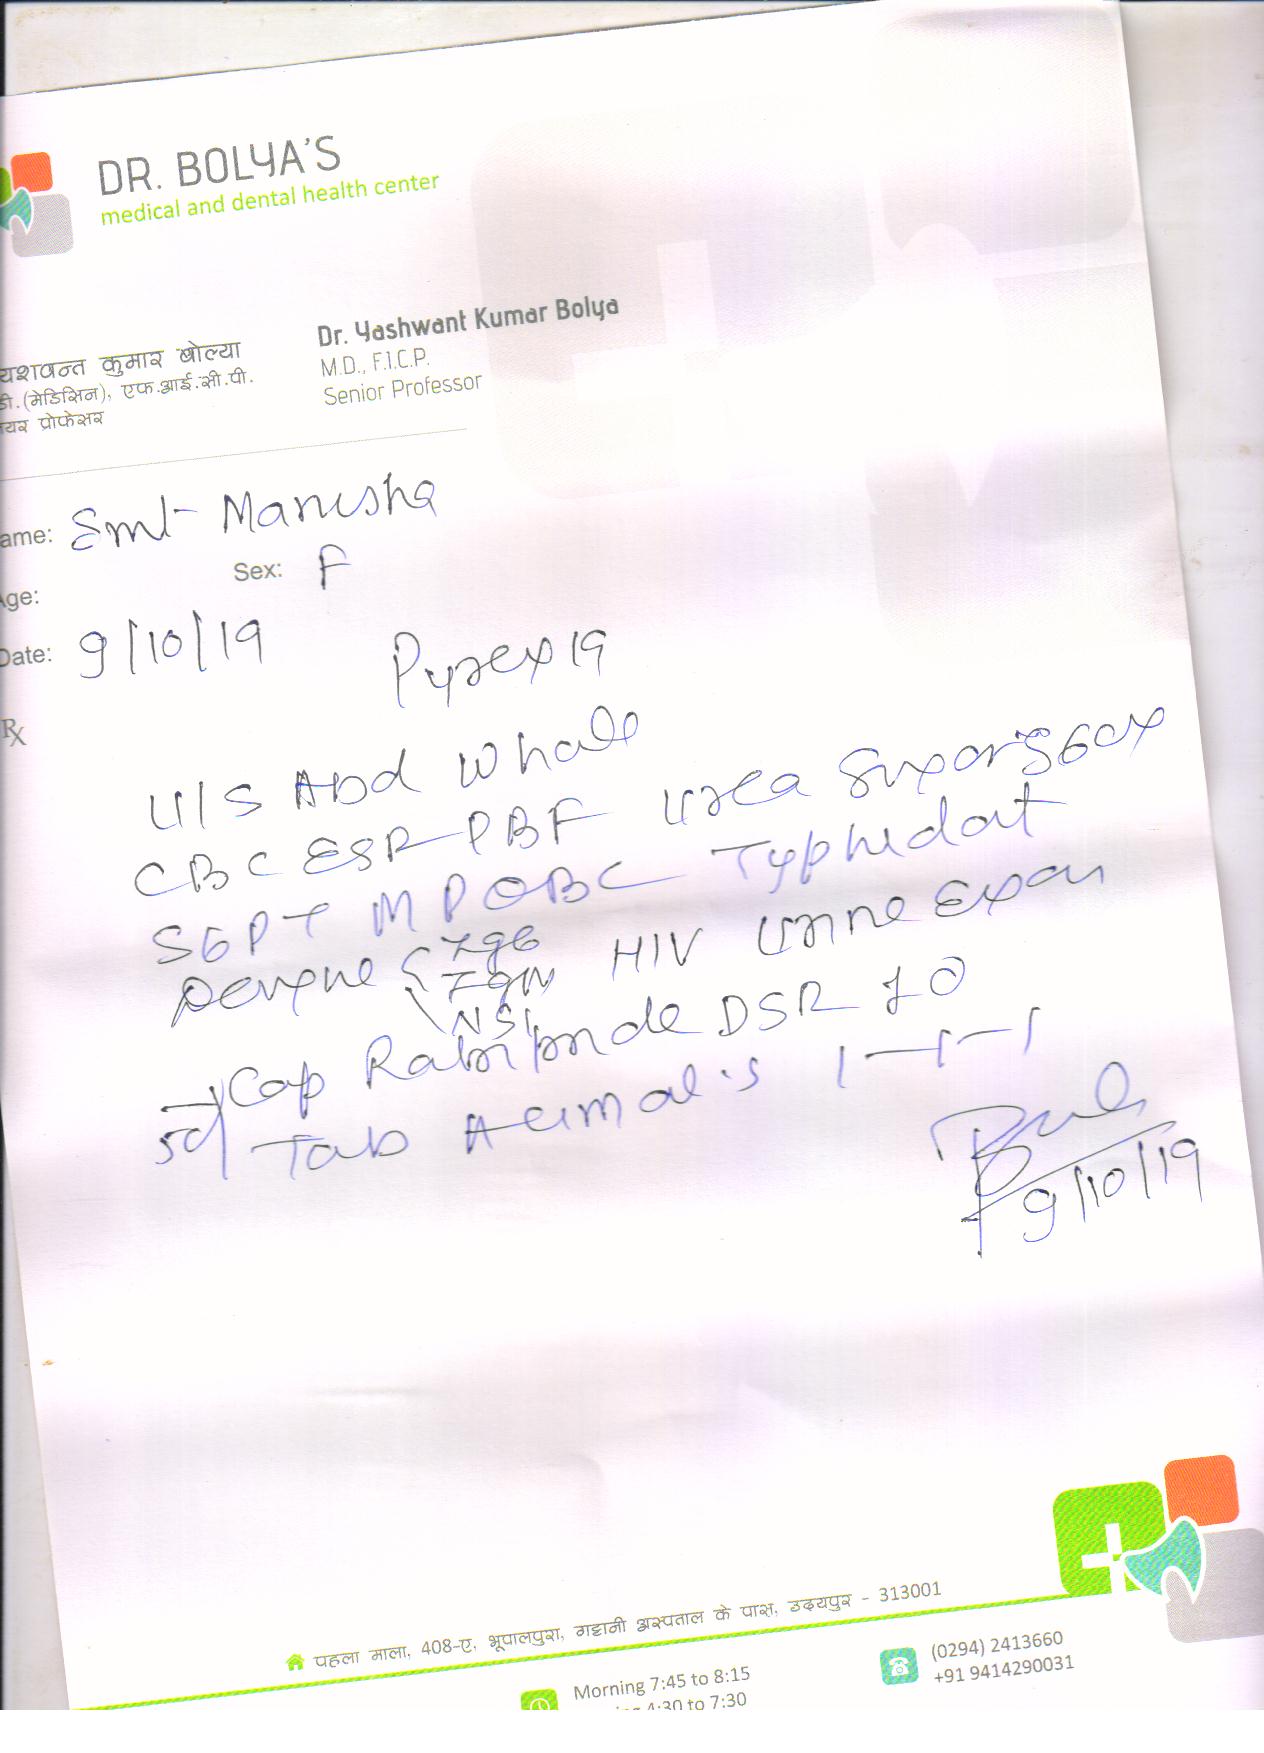 DR. BOLYA'S
medical and dental health center
यशवन्त कुमार बोल्या
डी.(मेडिसिन), एफ.आई.सी.पी.
यर प्रोफेसर
Dr. Yashwant Kumar Bolya
M.D., F.I.C.P.
Senior Professor
ame: Smt Manisha
Age: Sex: F
Date: 9/10/19
Pyrexia
Rx
U/S Abd Whole
CBC ESR PBF Urea Sugar
SGPT MP QBC Typhidot
Dengue { IgG HIV Urine Exam
IgM
NS1
Cap DSR 10
5d Tab 1-1-1
9/10/19
पहला माला, 408-ए, भूपालपुरा, गट्टानी अस्पताल के पास, उदयपुर - 313001
Morning 7:45 to 8:15
4:30 to 7:30
(0294) 2413660
+91 9414290031